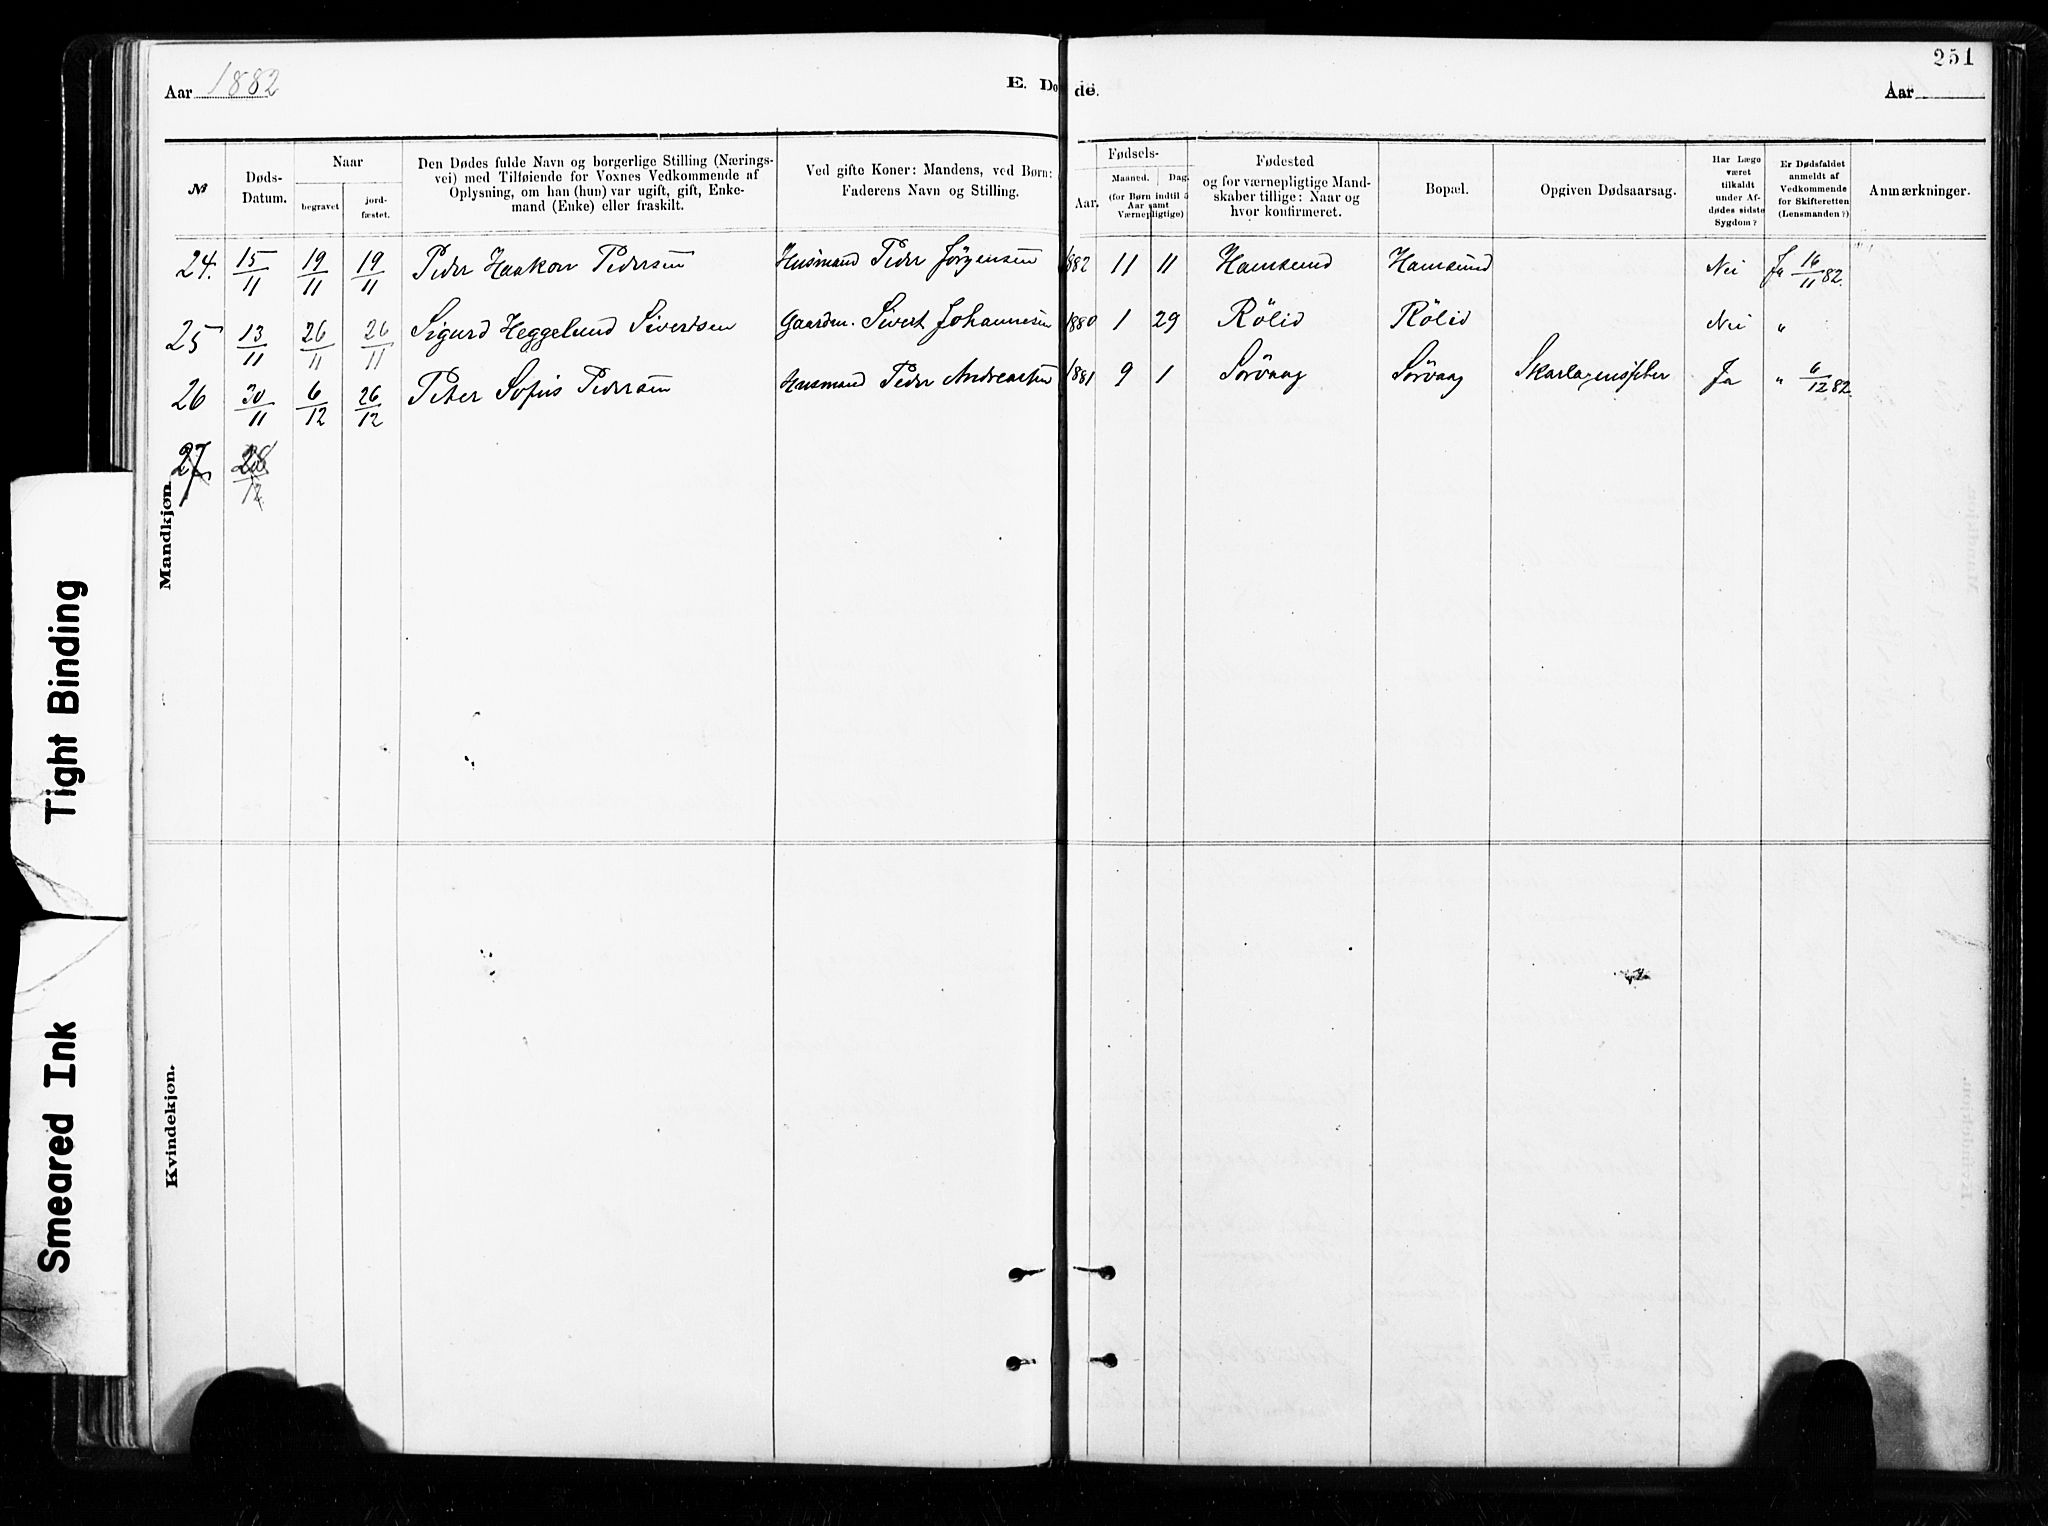 251
Aar 1882
E. Do de.
Aar
№
Døds-
Datum.
Naar
begravet
jord-
fæstet.
Den Dødes fulde Navn og borgerlige Stilling (Nærings-
vei) med Tilføiende for Voxnes Vedkommende af
Oplysning, om han (hun) var ugift, gift, Enke-
mand (Enke) eller fraskilt.
Ved gifte Koner: Mandens, ved Børn:
Faderens Navn og Stilling.
Fødsels-
Aar.
Maaned.
Dag.
(for Børn indtil 5
Aar samt
Værnepligtige)
Fødested
og for værnepligtige Mand-
skaber tillige: Naar og
hvor konfirmeret.
Bopæl.
Opgiven Dødsaarsag.
Har Læge
været
tilkaldt
under Af-
dødes sidste
Sygdom?
Er Dødsfaldet
anmeldt af
Vedkommende
for Skifteretten
(Lensmanden?)
Anmærkninger.
24. 15/11 19/11 19/11 Peder Haakon Pedersen Husmand Peder Jörgensen 1882 11 11 Hamsund Hamsund Nei Ja 16/11 82.
25 13/11 26/11 26/11 Sigurd Heggelund Sivertsen Gaardm. Sivert Johannesen 1880 1 29 Rölid Rölid Nei "
26 30/11 6/12 26/12 Peter Sofus Pedersen Husmand Peder Andreassen 1881 9 1 Sörvaag Sörvaag Skarlagensfeber Ja " 6/12 82.
27 28/12
Mandkjøn.
Kvindekjøn.
Tight Binding
Smeared Ink